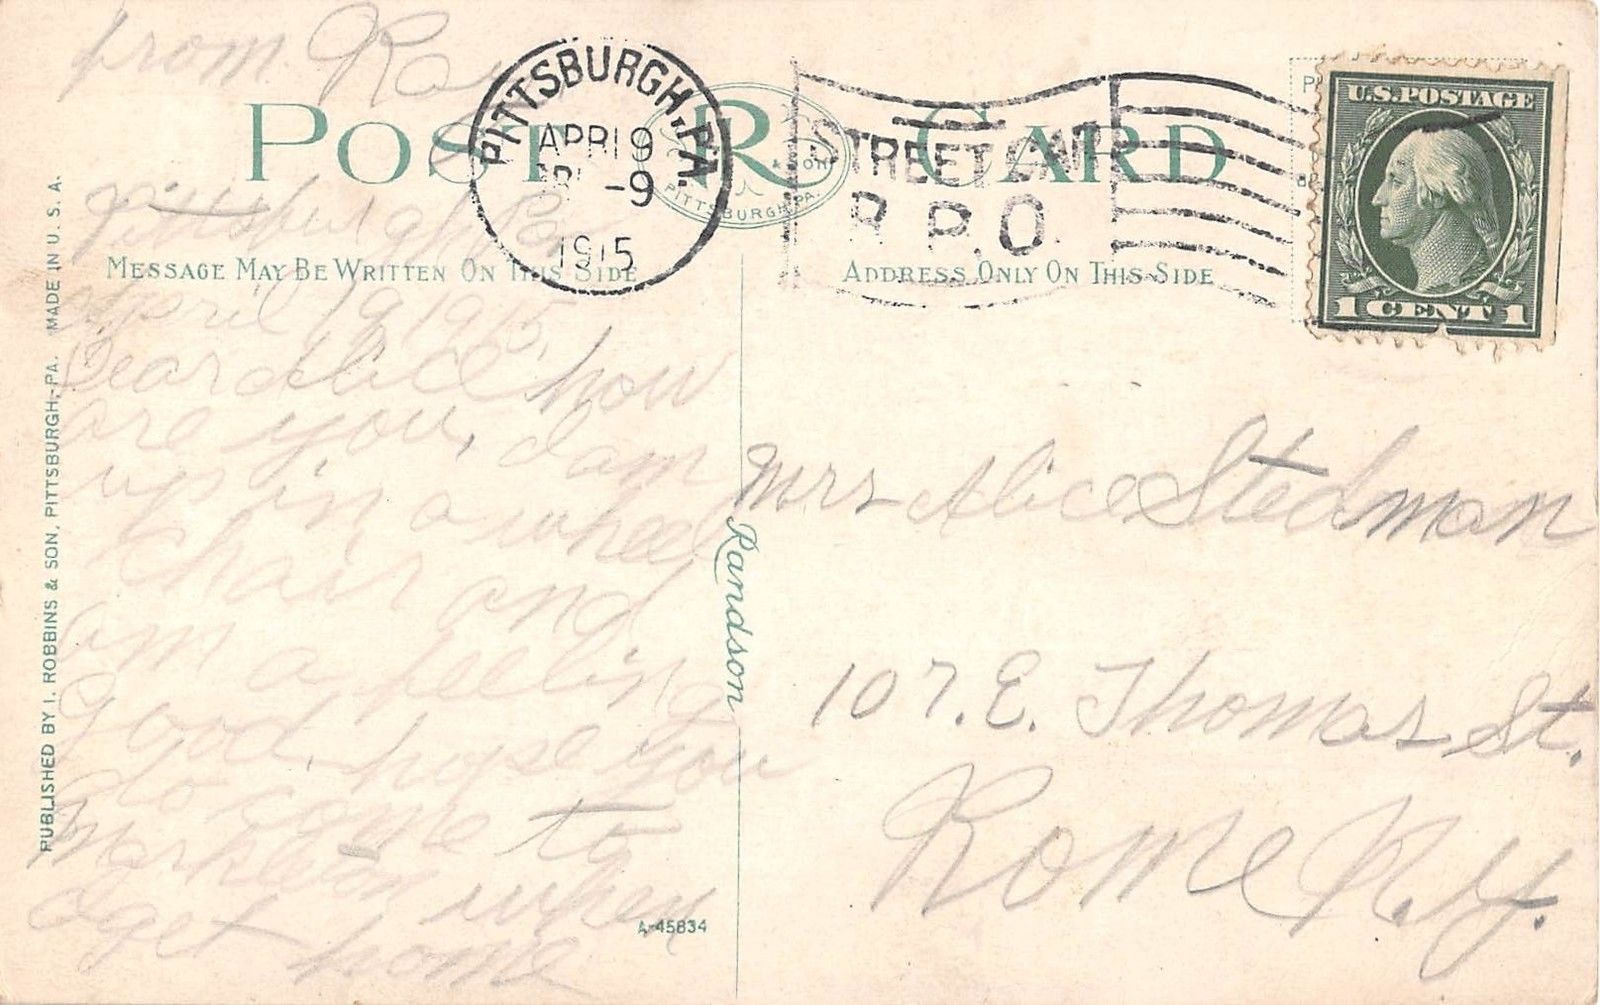 from Ray
POST CARD
R
& SON
PITTSBURGH, PA.
PITTSBURGH, PA.
APR 19
-9
1915
STREET CAR
R.P.O.
U.S. POSTAGE
1 CENT 1
MESSAGE MAY BE WRITTEN ON THIS SIDE
ADDRESS ONLY ON THIS SIDE
Pittsburgh Pa
April 19 1915,
Dear Alice how
are you, I am
up in a wheel
chair and
am a feeling
good, hope you
do come to
Markleton when
I get home
Mrs Alice Stedman
107. E. Thomas St.
Rome N.Y.
Randson
A-45834
PUBLISHED BY I. ROBBINS & SON, PITTSBURGH, PA. MADE IN U. S. A.